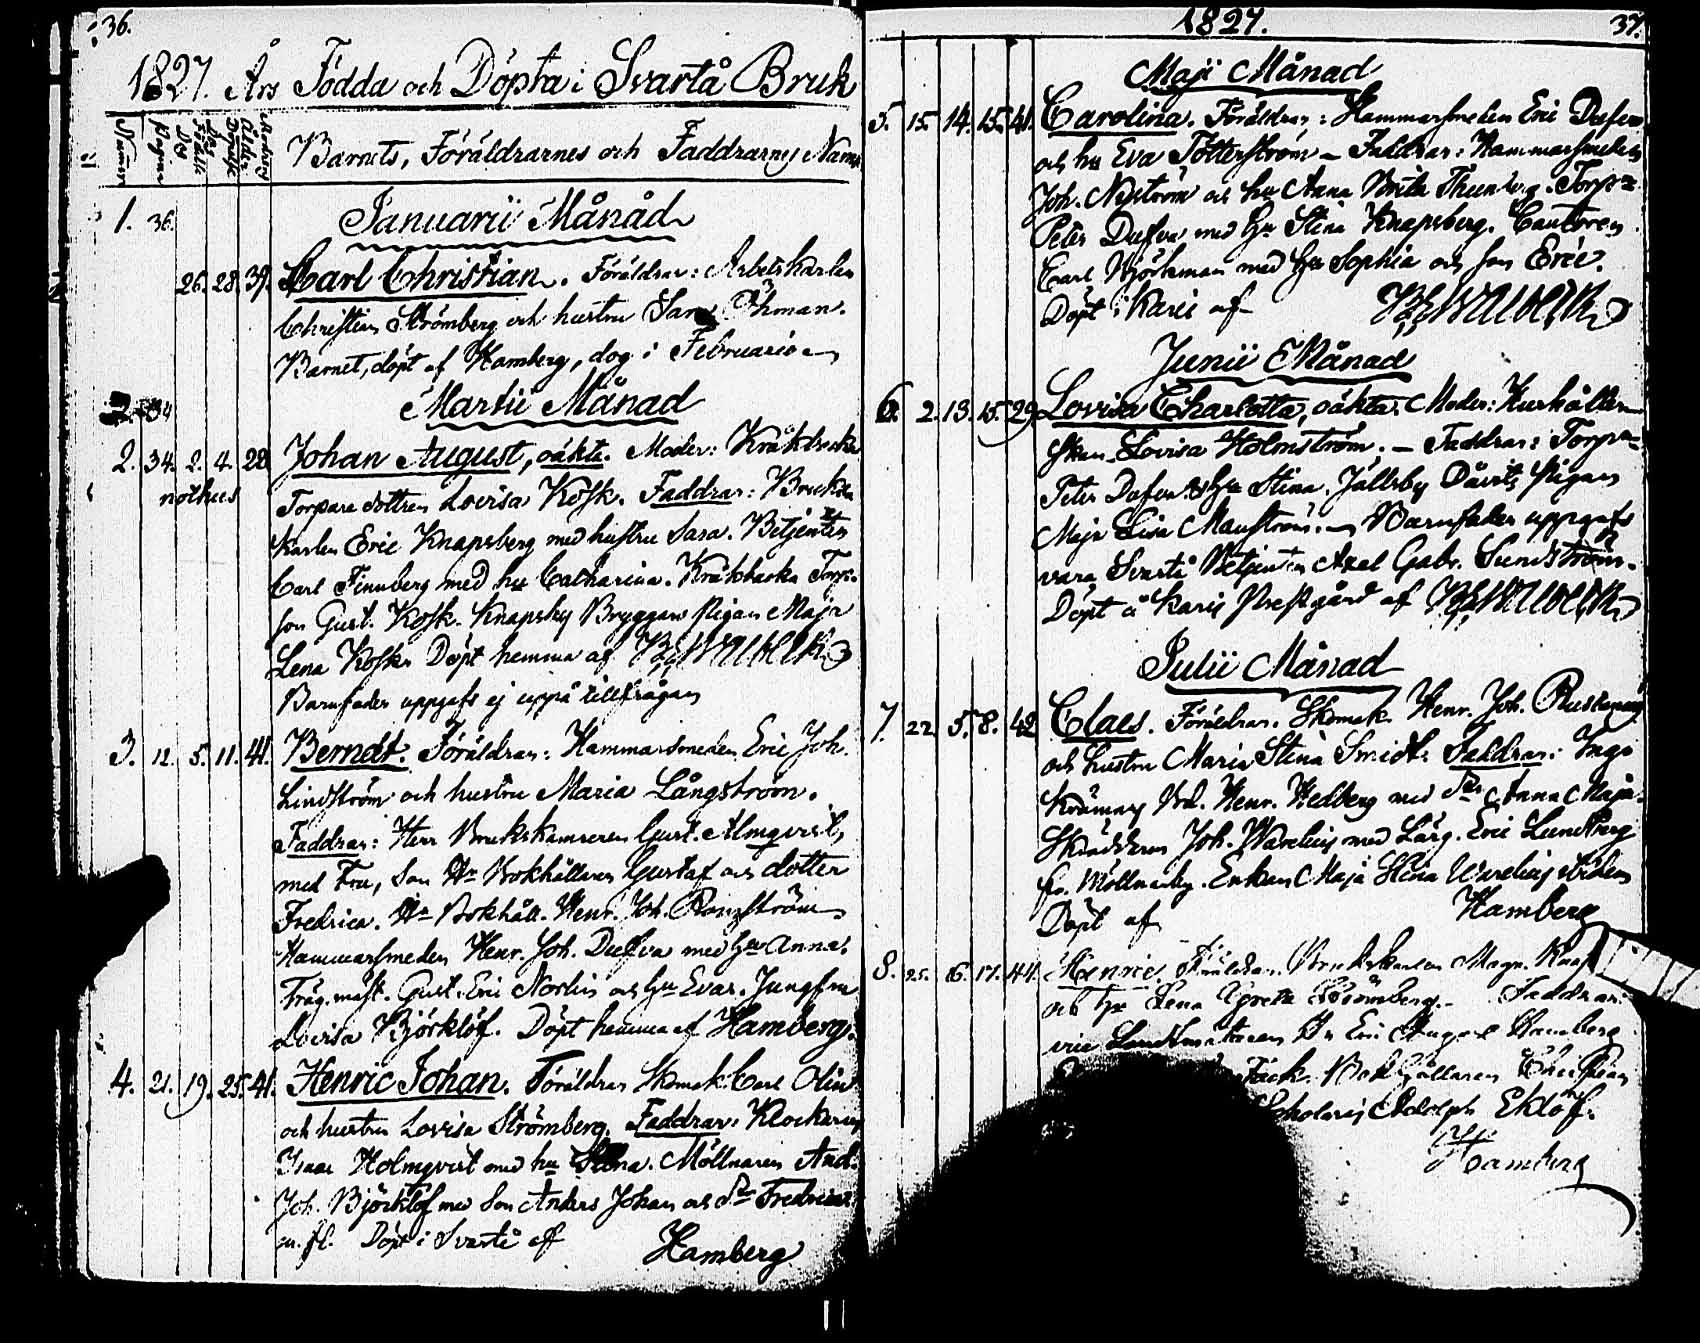 36.
1827. Års Födda och Döpta i Svartå Bruk
Nummer Pagina Födde Dag Döpelse Dag Moderns Ålder
Barnets, Föräldrarnes och Faddrarnes Namn
1. 36. Januarii Månad
26. 28. 39. Carl Christian. Föräldrar: Arbetskarlen
Christian Strömberg och hustru Sara Öhman.
Barnet, döpt af Hamberg, dog i Februario
Martii Månad
2. 34. 2. 4. 28. Johan August, oäkta. Moder: Kråkbacka
nothus
Torpare dottren Lovisa Kosk. Faddrar: Bruks
karlen Eric Knapsberg med hustru Sara. Betjenten
Carl Finnberg med hu Catharina. Kråkbacka Torp.
son Gust. Kosk. Knapsby Bryggars Pigan Maja
Lena Kosk. Döpt hemma af
Barnfader uppgafs ej uppå tillfrågan
3. 12. 5. 11. 41. Berndt. Föräldrar: Hammarsmeden Eric Joh.
Lindström och hustru Maria Långström.
Faddrar: Herr Brukskamreren Gust. Almqvist,
med Fru, Son Hr Bokhållaren Gustaf och dotter
Fredrica. Hr Bokhåll. Henr. Joh.
Hammarsmeden Henr. Joh. Dufva med hu Anna.
Träg.mäst. Gust. Eric Norlin och hu Eva. Jungfru
Lovisa Björklöf. Döpt hemma af Hamberg.
4. 21. 19. 25. 41. Henric Johan. Föräldrar Skomak. Carl Olin
och hustru Lovisa Strömberg. Faddrar: Klockaren
Isaac Holmqvist med hu Stina. Möllnaren And.
Joh. Björklöf med Son Anders Johan och dr Fredrica
m. fl. Döpt i Svartå af Hamberg
1827. 37.
Maji Månad
5. 15. 14. 15. 41. Carolina. Föräldrar: Hammarsmeden Eric Dufva
och hu Eva Tötterström – Faddrar: Hammarsmeden
Joh. Nyström och hu Anna Brita Thunberg. Torp.
Peter Dufva med hu Stina Knapsberg. Cantoren
Carl Björkman med hu Sophia och son Eric.
Döpt i Karis af
Junii Månad
6. 2. 13. 15. 29. Lovisa Charlotta, oäkta. Moder: Hushåller
skan Lovisa Holmström. – Faddrar: Torp.
Peter Dufva och hu Stina. Jällsby Davids Pigan
Maja Lisa Manström. – Barnfader uppgafs
vara Svartå Betjenten Axel Gabr. Sundström.
Döpt å Karis Prestgård af
Julii Månad
7. 22. 5. 8. 42. Claes. Föräldrar. Skomak. Henr. Joh.
och hustru Maria Stina Smidt. Faddrar: Ingå
Krämars Henr. Hedberg med dr Anna Maja.
Skräddaren Joh. Warelius med Lärg. Eric Lundberg
fr. Möllnarby. Enkan Maja Stina Warelius
Döpt af Hamberg
8. 25. 16. 17. 44. Henric. Föräldrar. Brukskarlen Magn.
och hu Lena Greta Strömberg. – Faddrar:
vice Landtmätaren Hr Eric August Hamberg
Bokhållaren Christian
Scholaris Adolph Eklöf.
Hamberg